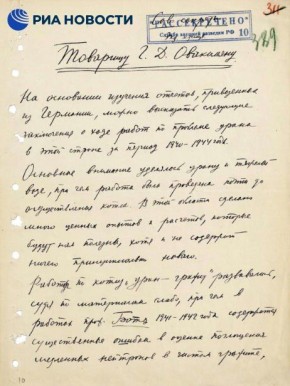 РИА НОВОСТИ
РАССЕКРЕЧЕНО
Служба внешней разведки РФ
10
Товарищу Г. Д. Овакимяну
На основании изучения отчетов, привезенных
из Германии, можно высказать следующие
заключения о ходе работ по проблеме урана
в этой стране за период 1940-1944 гг.
Основное внимание уделялось урану и тяжелой
воде, при чем работа была проведена почти до
осуществления котла. В этой области сделано
много ценных опытов и расчетов, которые
будут нам полезны, хотя и не содержат
ничего принципиально нового.
Работы по котлу уран-графит развивались,
судя по материалам слабо, при чем в
работах проф. Боте 1941-1942 года содержатся
существенные ошибки в оценке поглощения
медленных нейтронов в чистом графите,
10